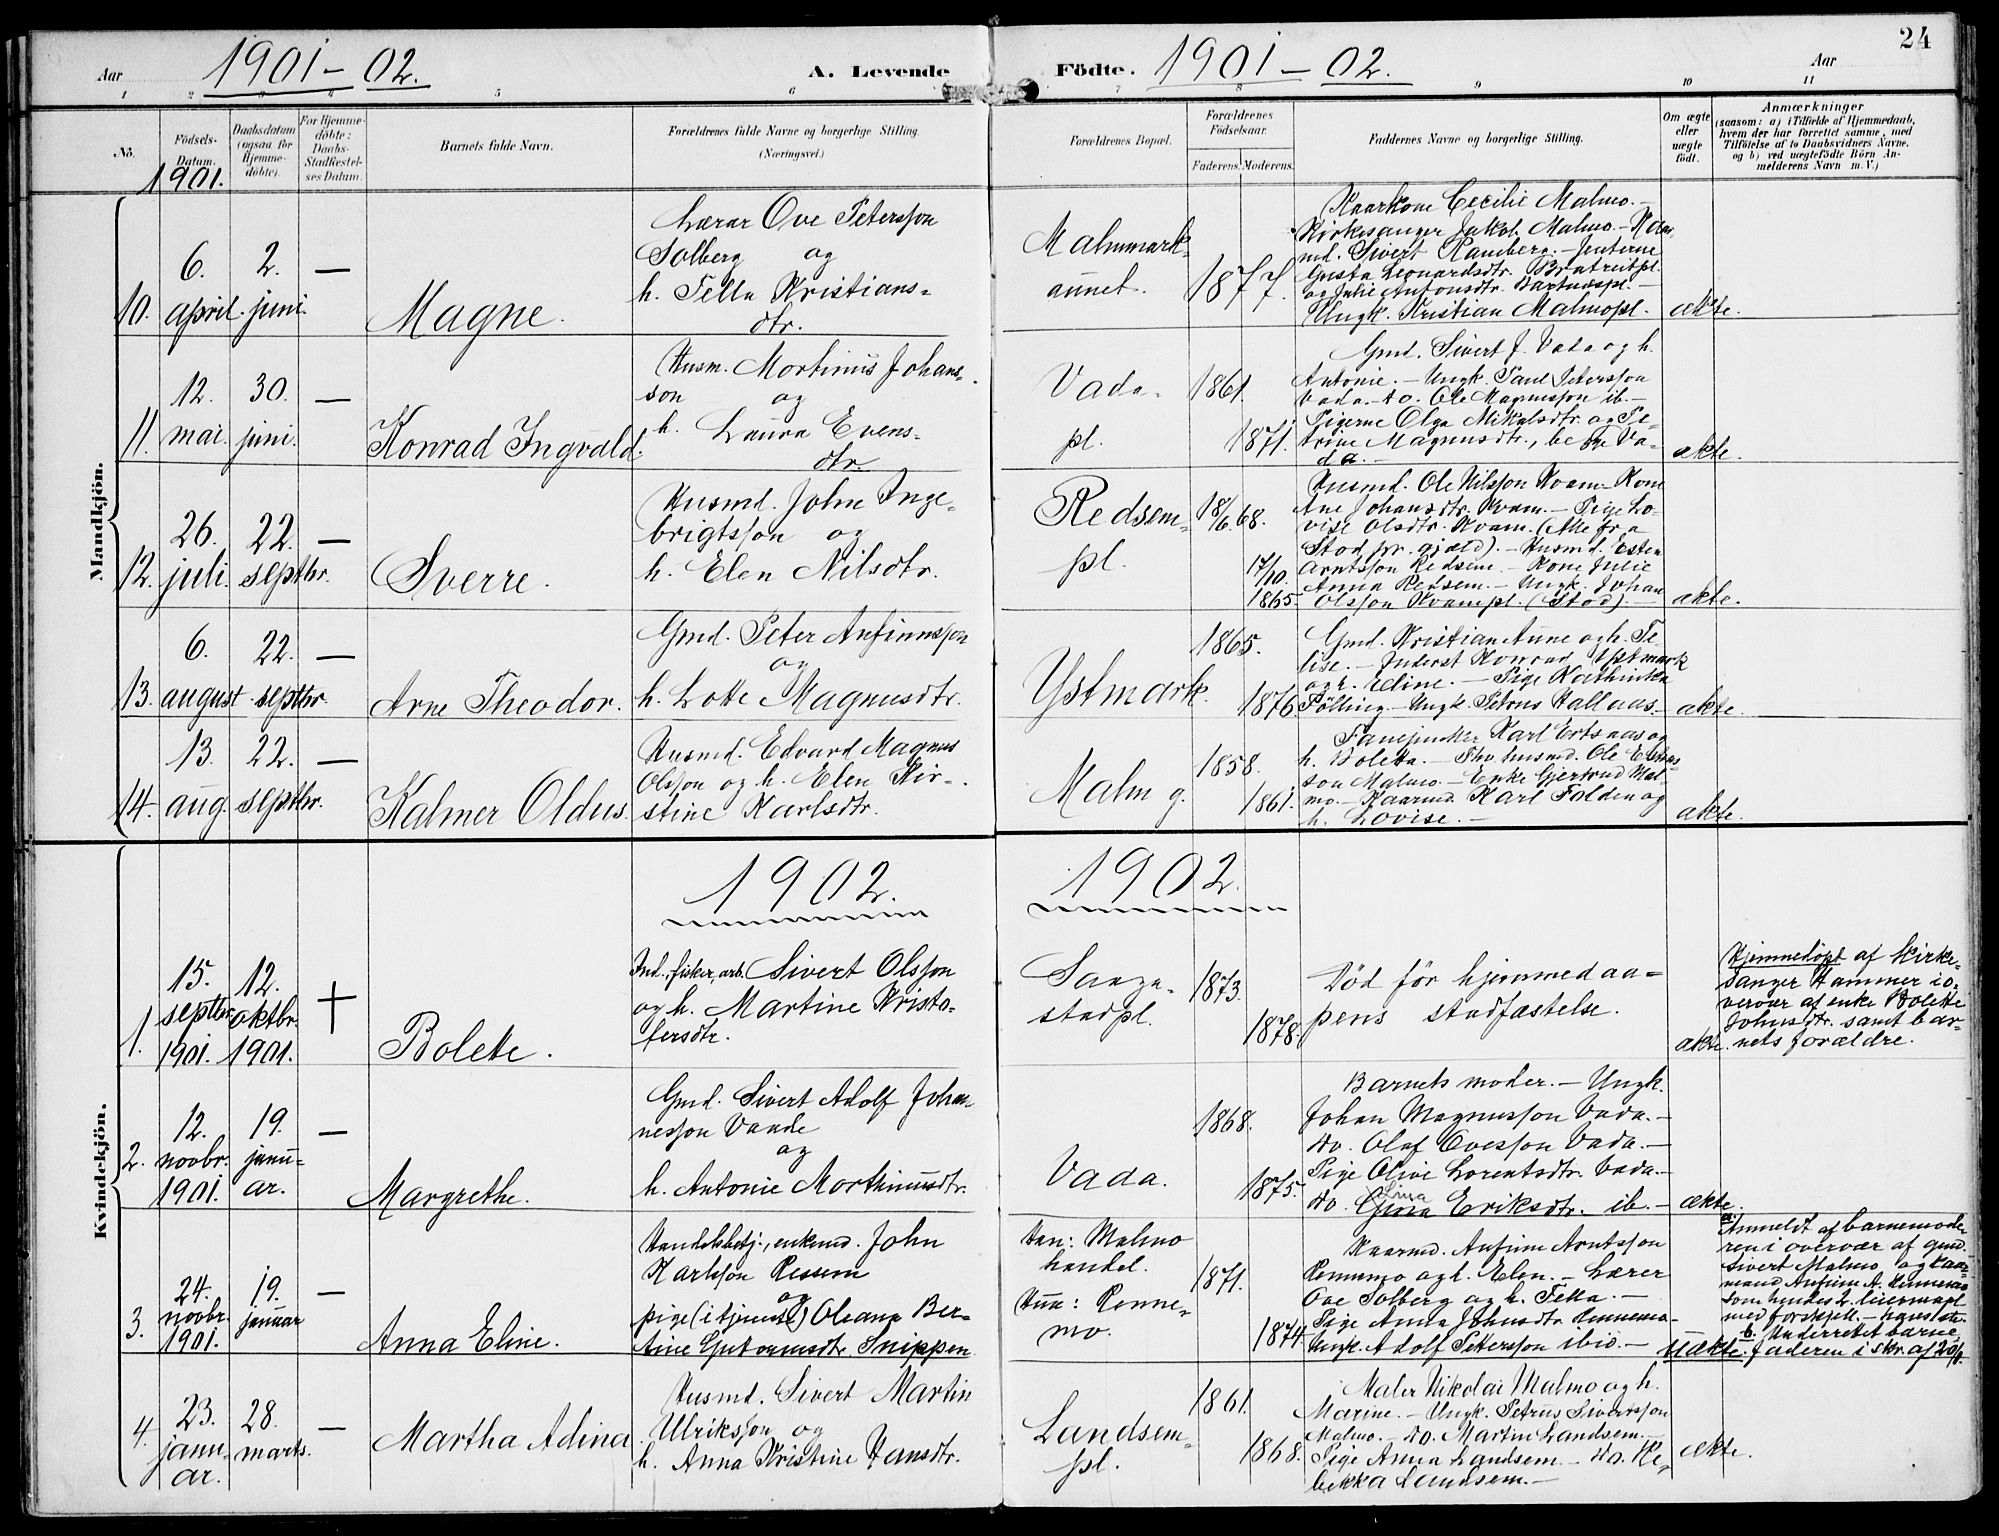 24
Aar 1901–02. A. Levende Födte. 1901–02. Aar
1 2 3 4 5 6 7 8 9 10 11
No.
Födsels-
Datum.
1901.
Daabsdatum
(ogsaa for
Hjemme-
döbte).
For Hjemme-
döbte:
Daabs-
Stadfæstel-
ses Datum.
Barnets fulde Navn.
Forældrenes fulde Navne og borgerlige Stilling.
(Næringsvei.)
Forældrenes Bopæl.
Forældrenes
Födselsaar.
Faderens. Moderens.
Faddernes Navne og borgerlige Stilling.
Om ægte
eller
uægte
födt.
Anmærkninger
(saasom: a) i Tilfælde af Hjemmedaab,
hvem der har forrettet samme, med
Tilföielse af to Daabsvidners Navne,
og b) ved uægtefödte Börn An-
melderens Navn m. V.)
Mandkjön.
10.
6.
april.
2.
juni.
—
Magne.
Lærar Ove Petersson
Solberg og
h. Fella Kristians-
dtr.
Malmmark-
aunet.
1877.
Kaarkone Cecilie Malmo.—
Kirkesanger Jakob Malmo.—Kaar-
md. Sivert Ramberg.—Jenterne
Gusta Leonardsdtr. Bratreitpl.
og Julie Antonsdtr. Bartnæspl.—
Ungk. Kristian Malmopl.
ækte.
11.
12.
mai.
30.
juni.
—
Konrad Ingvald.
Husm. Mortinus Johans-
son og
h. Laura Evens-
dtr.
Vada-
pl.
1861.
1871.
Gmd. Sivert J. Vada og h.
Antonie.—Ungk. Paul Petersson
Vada.—do. Ole Magnusson ib.—
Pigerne Olga Mikalsdtr. og Pe-
trine Magnusdtr., begge Va-
da.—
ækte.
12.
26.
juli.
22.
septbr.
—
Sverre.
Husmd. John Inge-
brigtsson og
h. Elen Nilsdtr.
Redsem-
pl.
18/6.68.
17/10.
1865.
Husmd. Ole Nilsson Kvam—Kone
Ane Johansdtr. Kvam.—Pige Lo-
vise Olsdtr. Kvam. (Alle fra
Stod pr.gjæld).—Husmd. Esten
Arntsson Redsem.—Kone Julie
Anna Redsem.—Ungk. Johan
Olsson Kvampl. (Stod).—
ækte.
13.
6.
august
22.
septbr.
—
Arne Theodor.
Gmd. Peter Anfinnsson
og
h. Lotte Magnusdtr.
Ystmark.
1865.
1876.
Gmd. Kristian Aune og h. Te-
lise.—Inderst Konrad Ystmark
og h. Eline.—Pige Kathinka
Følling—Ungk. Petrus Hallaas.—
ækte.
14.
13.
aug.
22.
septbr.
—
Kalmer Oldus.
Husmd. Edvard Magnus
Olsson og h. Elen Kir-
stine Karlsdtr.
Malm g.
1858.
1861.
Fanejunker Karl Ertsaas og
h. Boletta.—Fhv. husmd. Ole
Malmo.—Enke Gjertrud Mal-
mo.—Kaarmd. Karl Folden og
h. Lovise.—
ækte.
Kvindekjön.
1902. 1902.
1.
15.
septbr.
1901.
12.
oktbr.
1901.
†
Bolete.
Ind., fisker, arb. Sivert Olsson
og h. Martine Kristo-
fersdtr.
Saaga-
stadpl.
1873.
1878.
Død før hjemmedaa-
pens stadfæstelse.
ækte.
Hjemmedøpt af kirke-
sanger Hammer i o-
vervær af enke Bolette
Johnsdtr. samt bar-
nets forældre.
2.
12.
novbr.
1901.
19.
janu-
ar.
—
Margrethe.
Gmd. Sivert Adolf Johan-
nesson Vaade
og
h. Antonie Morthinusdtr.
Vada.
1868.
1875.
Barnets moder.—Ungk.
Johan Magnusson Vada.—
do. Olaf Ovesson Vada.—
Pige Olive Lorentsdtr. Vada.—
do. Lina Eriksdtr. ib.—
ækte.
3.
24.
novbr.
1901.
19.
januar
—
Anna Eline.
Handelsbetj., enkemd. John
Karlsson Ressem
og
pige (i tjeneste) Oleana Ber-
tine Snippen
Han: Malmo
handel.
Hun: Renne-
mo.
1871.
1874
Kaarmd. Anfinn Arntsson
Rennemo og h. Elen.—Lærer
Ove Solberg og h. Fella.—
Pige Anna Johnsdtr. Rennemo—
Ungk. Adolf Pettersson ibid.—
uækte.
a. Anmeldt af barnemode-
ren i overvær af gmd.
Sivert Malmo og kaar-
mand Anfinn A. Rennemo
som hendes 2. leiermaal
med forskjell.
b. Underrettet barne-
faderen i skr. af 20/1.
4.
23.
janu-
ar.
28.
marts.
—
Martha Adina
Husmd. Sivert Martin
Ulriksson og
h. Anna Kristine Hansdtr.
Landsem-
pl.
1861.
1868.
Maler Nikolai Malmo og h.
Marine.—Ungk. Petrus Sivertsson
Malmo.—do. Martin Landsem.—
Pige Anna Landsem—do. Re-
bekka Landsem.—
ækte.